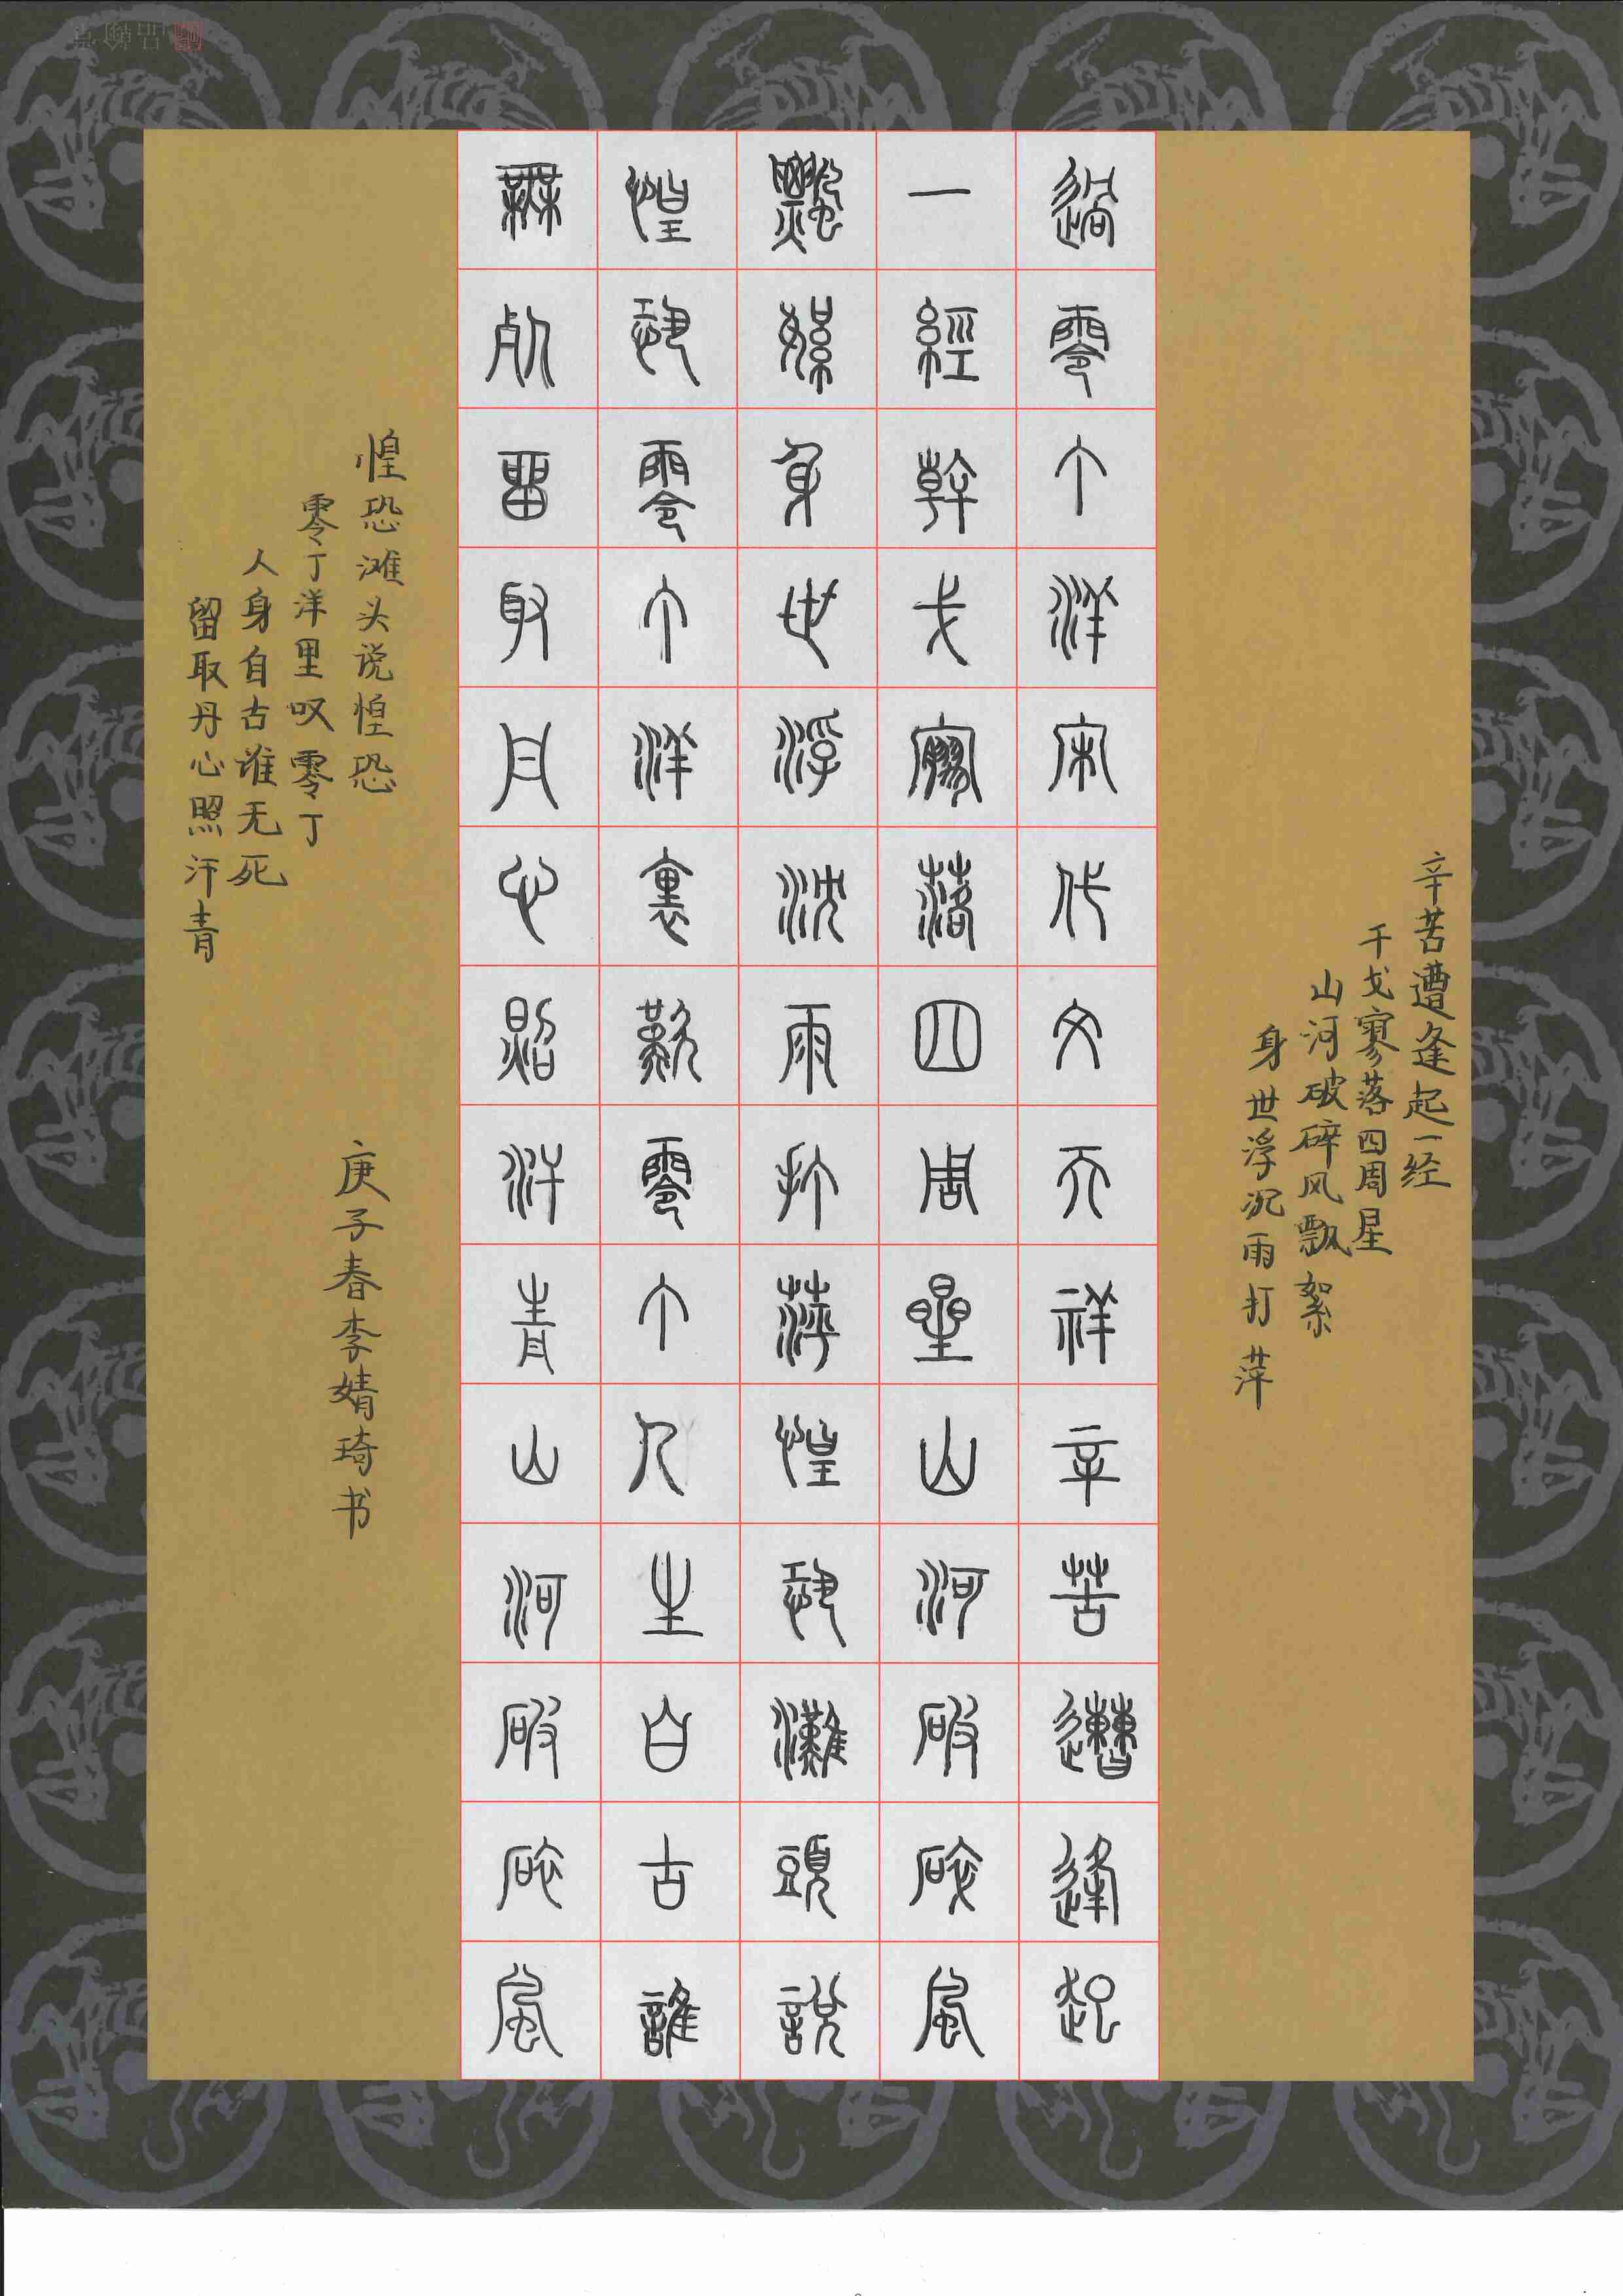 辛苦遭逢起一经
干戈寥落四周星
山河破碎风飘絮
身世浮沉雨打萍
過零丁洋宋代文天祥辛苦遭逢起
一經幹戈寥落四周星山河破碎風
飄絮身世浮沈雨打萍惶恐灘頭說
惶恐零丁洋裏歎零丁人生自古誰
無死留取丹心照汗青山河破碎風
惶恐滩头说惶恐
零丁洋里叹零丁
人身自古谁无死
留取丹心照汗青
庚子春李婧琦书